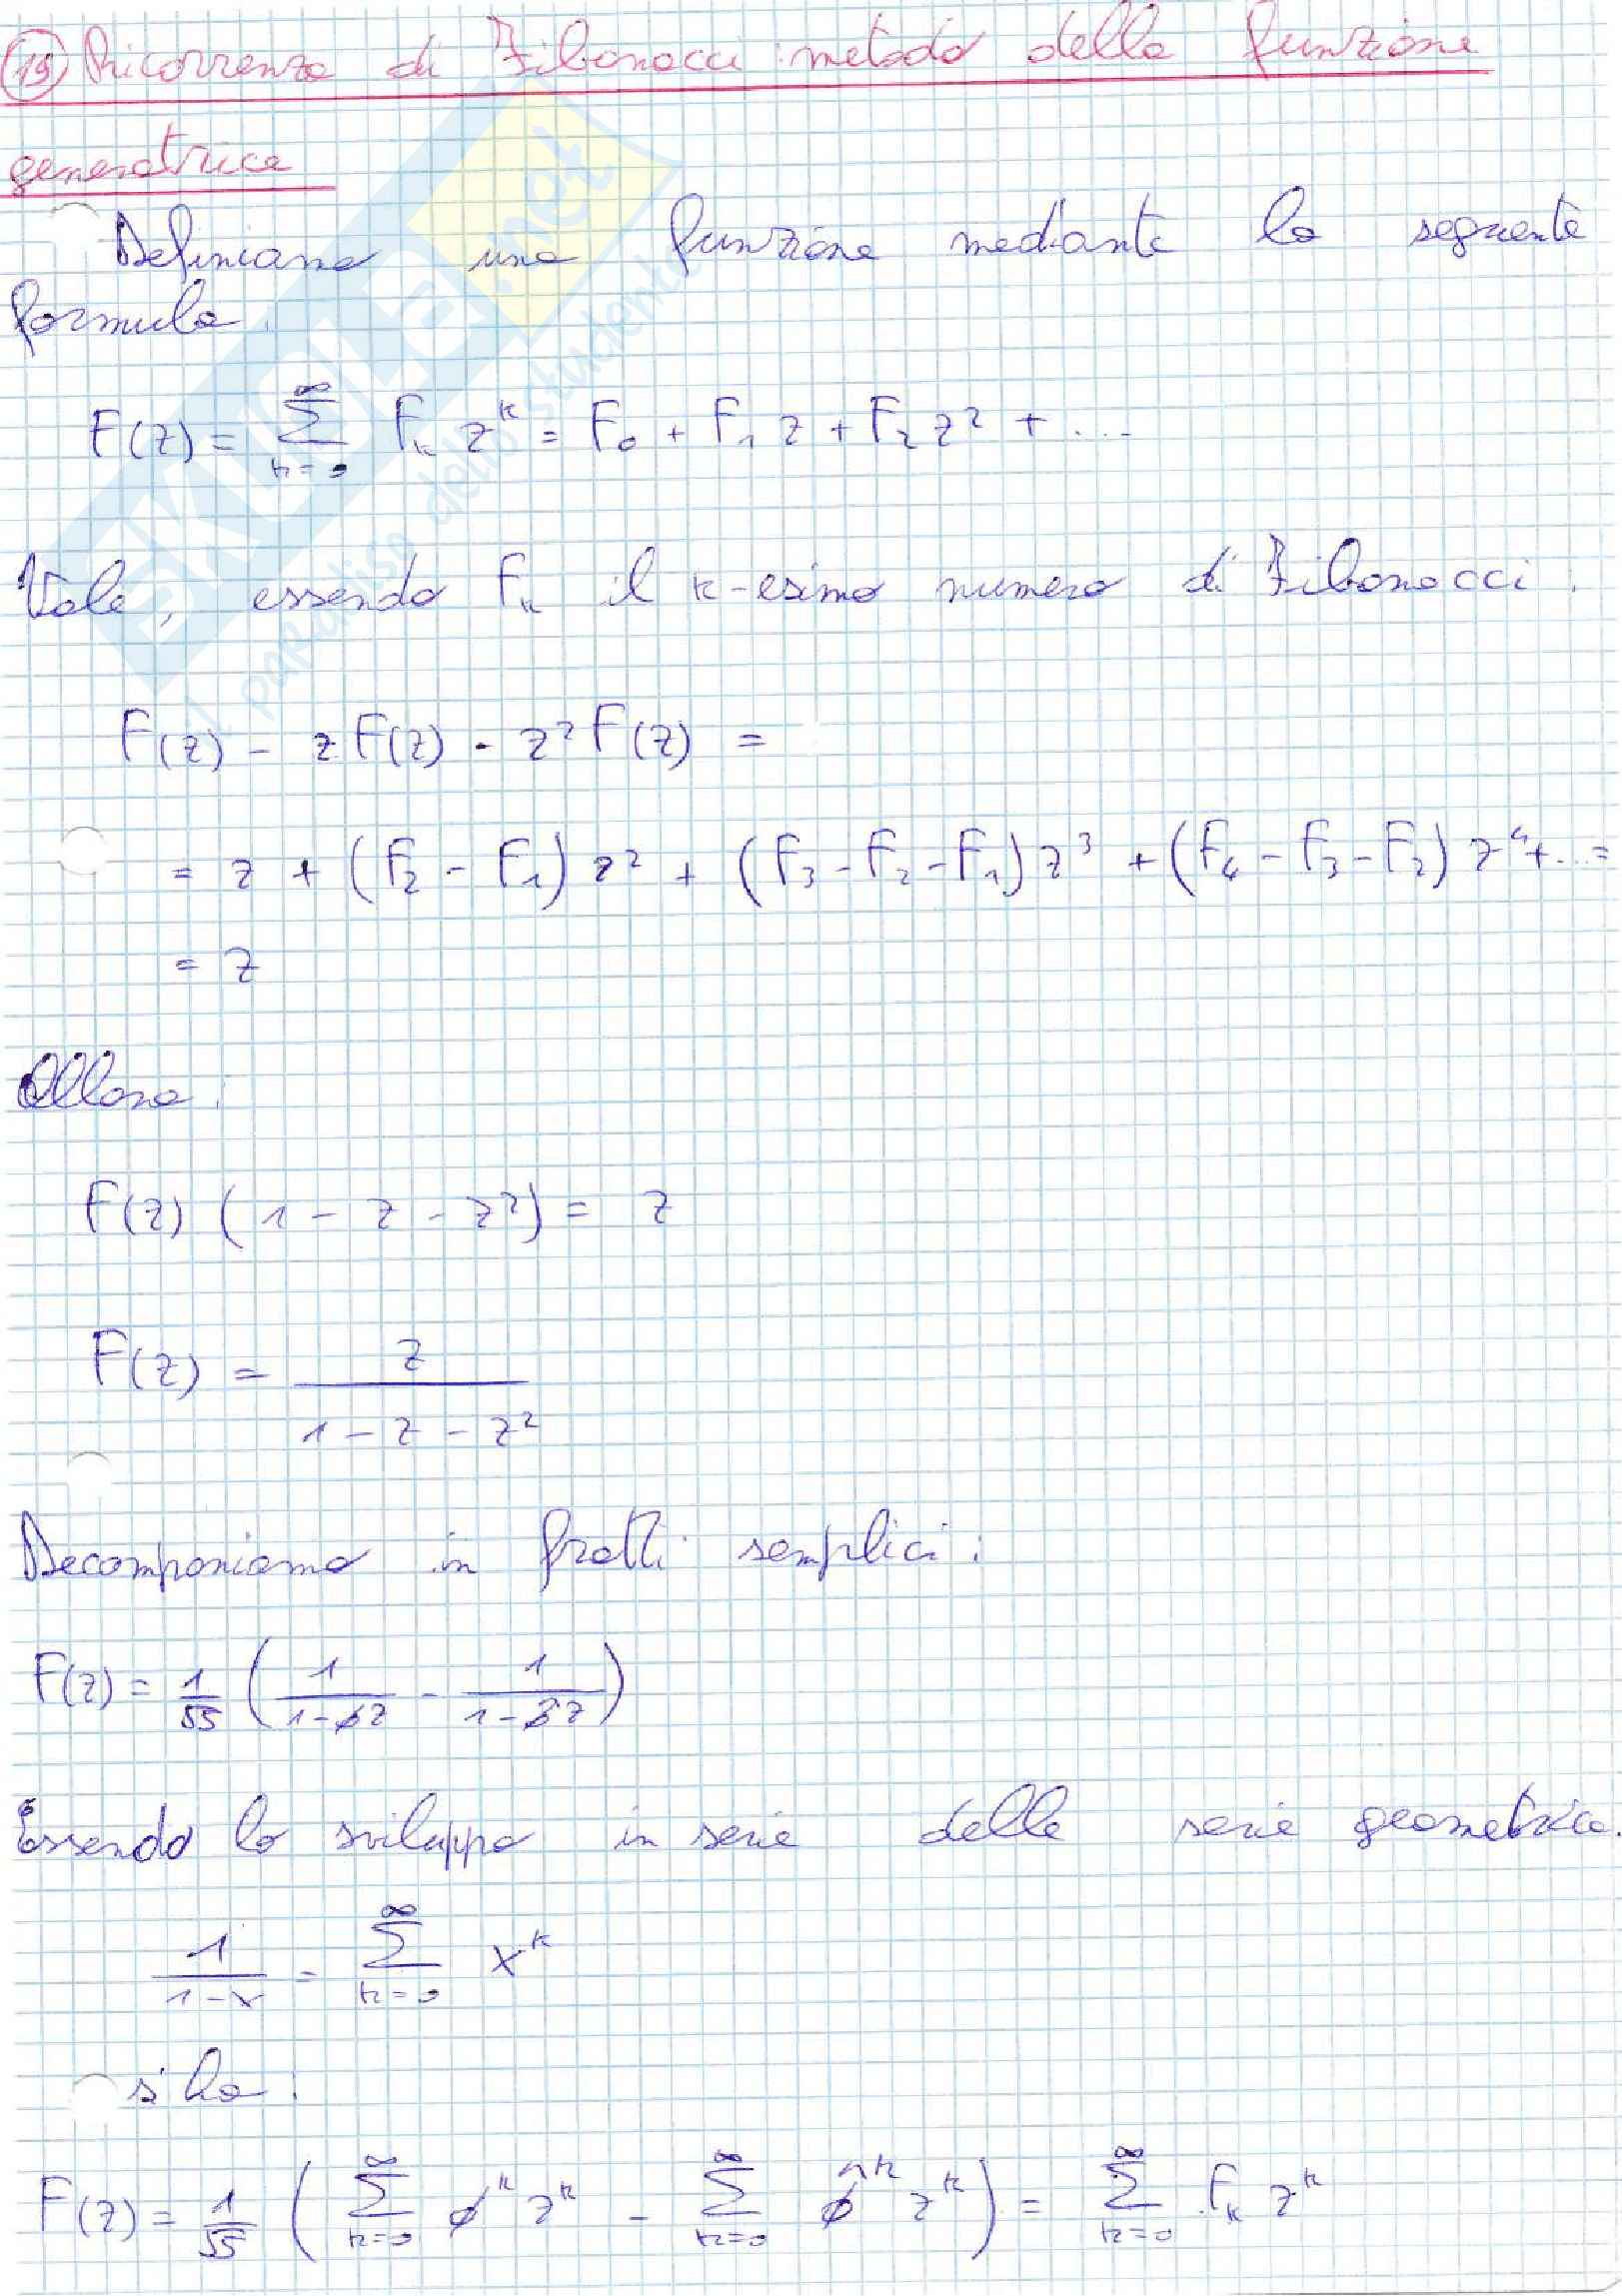 (19) Ricorrenza di Fibonacci: metodo della funzione
generatrice
Definiamo una funzione mediante la seguente
formula:
F(z) = ∑_{k=0}^{∞} F_k z^k = F_0 + F_1 z + F_2 z² + ...
Vale, essendo F_k il k-esimo numero di Fibonacci:
F(z) - z F(z) - z² F(z) =
= z + (F_2 - F_1) z² + (F_3 - F_2 - F_1) z³ + (F_4 - F_3 - F_2) z⁴ + ... =
= z
Allora:
F(z) (1 - z - z²) = z
F(z) = z / (1 - z - z²)
Decomponiamo in fratti semplici:
F(z) = 1/√5 ( 1/(1-ϕz) - 1/(1-ϕ̂z) )
Essendo lo sviluppo in serie della serie geometrica:
1/(1-x) = ∑_{k=0}^{∞} x^k
si ha:
F(z) = 1/√5 ( ∑_{k=0}^{∞} ϕ^k z^k - ∑_{k=0}^{∞} ϕ̂^k z^k ) = ∑_{k=0}^{∞} F_k z^k
SKUOLA.net
il paradiso dello studente